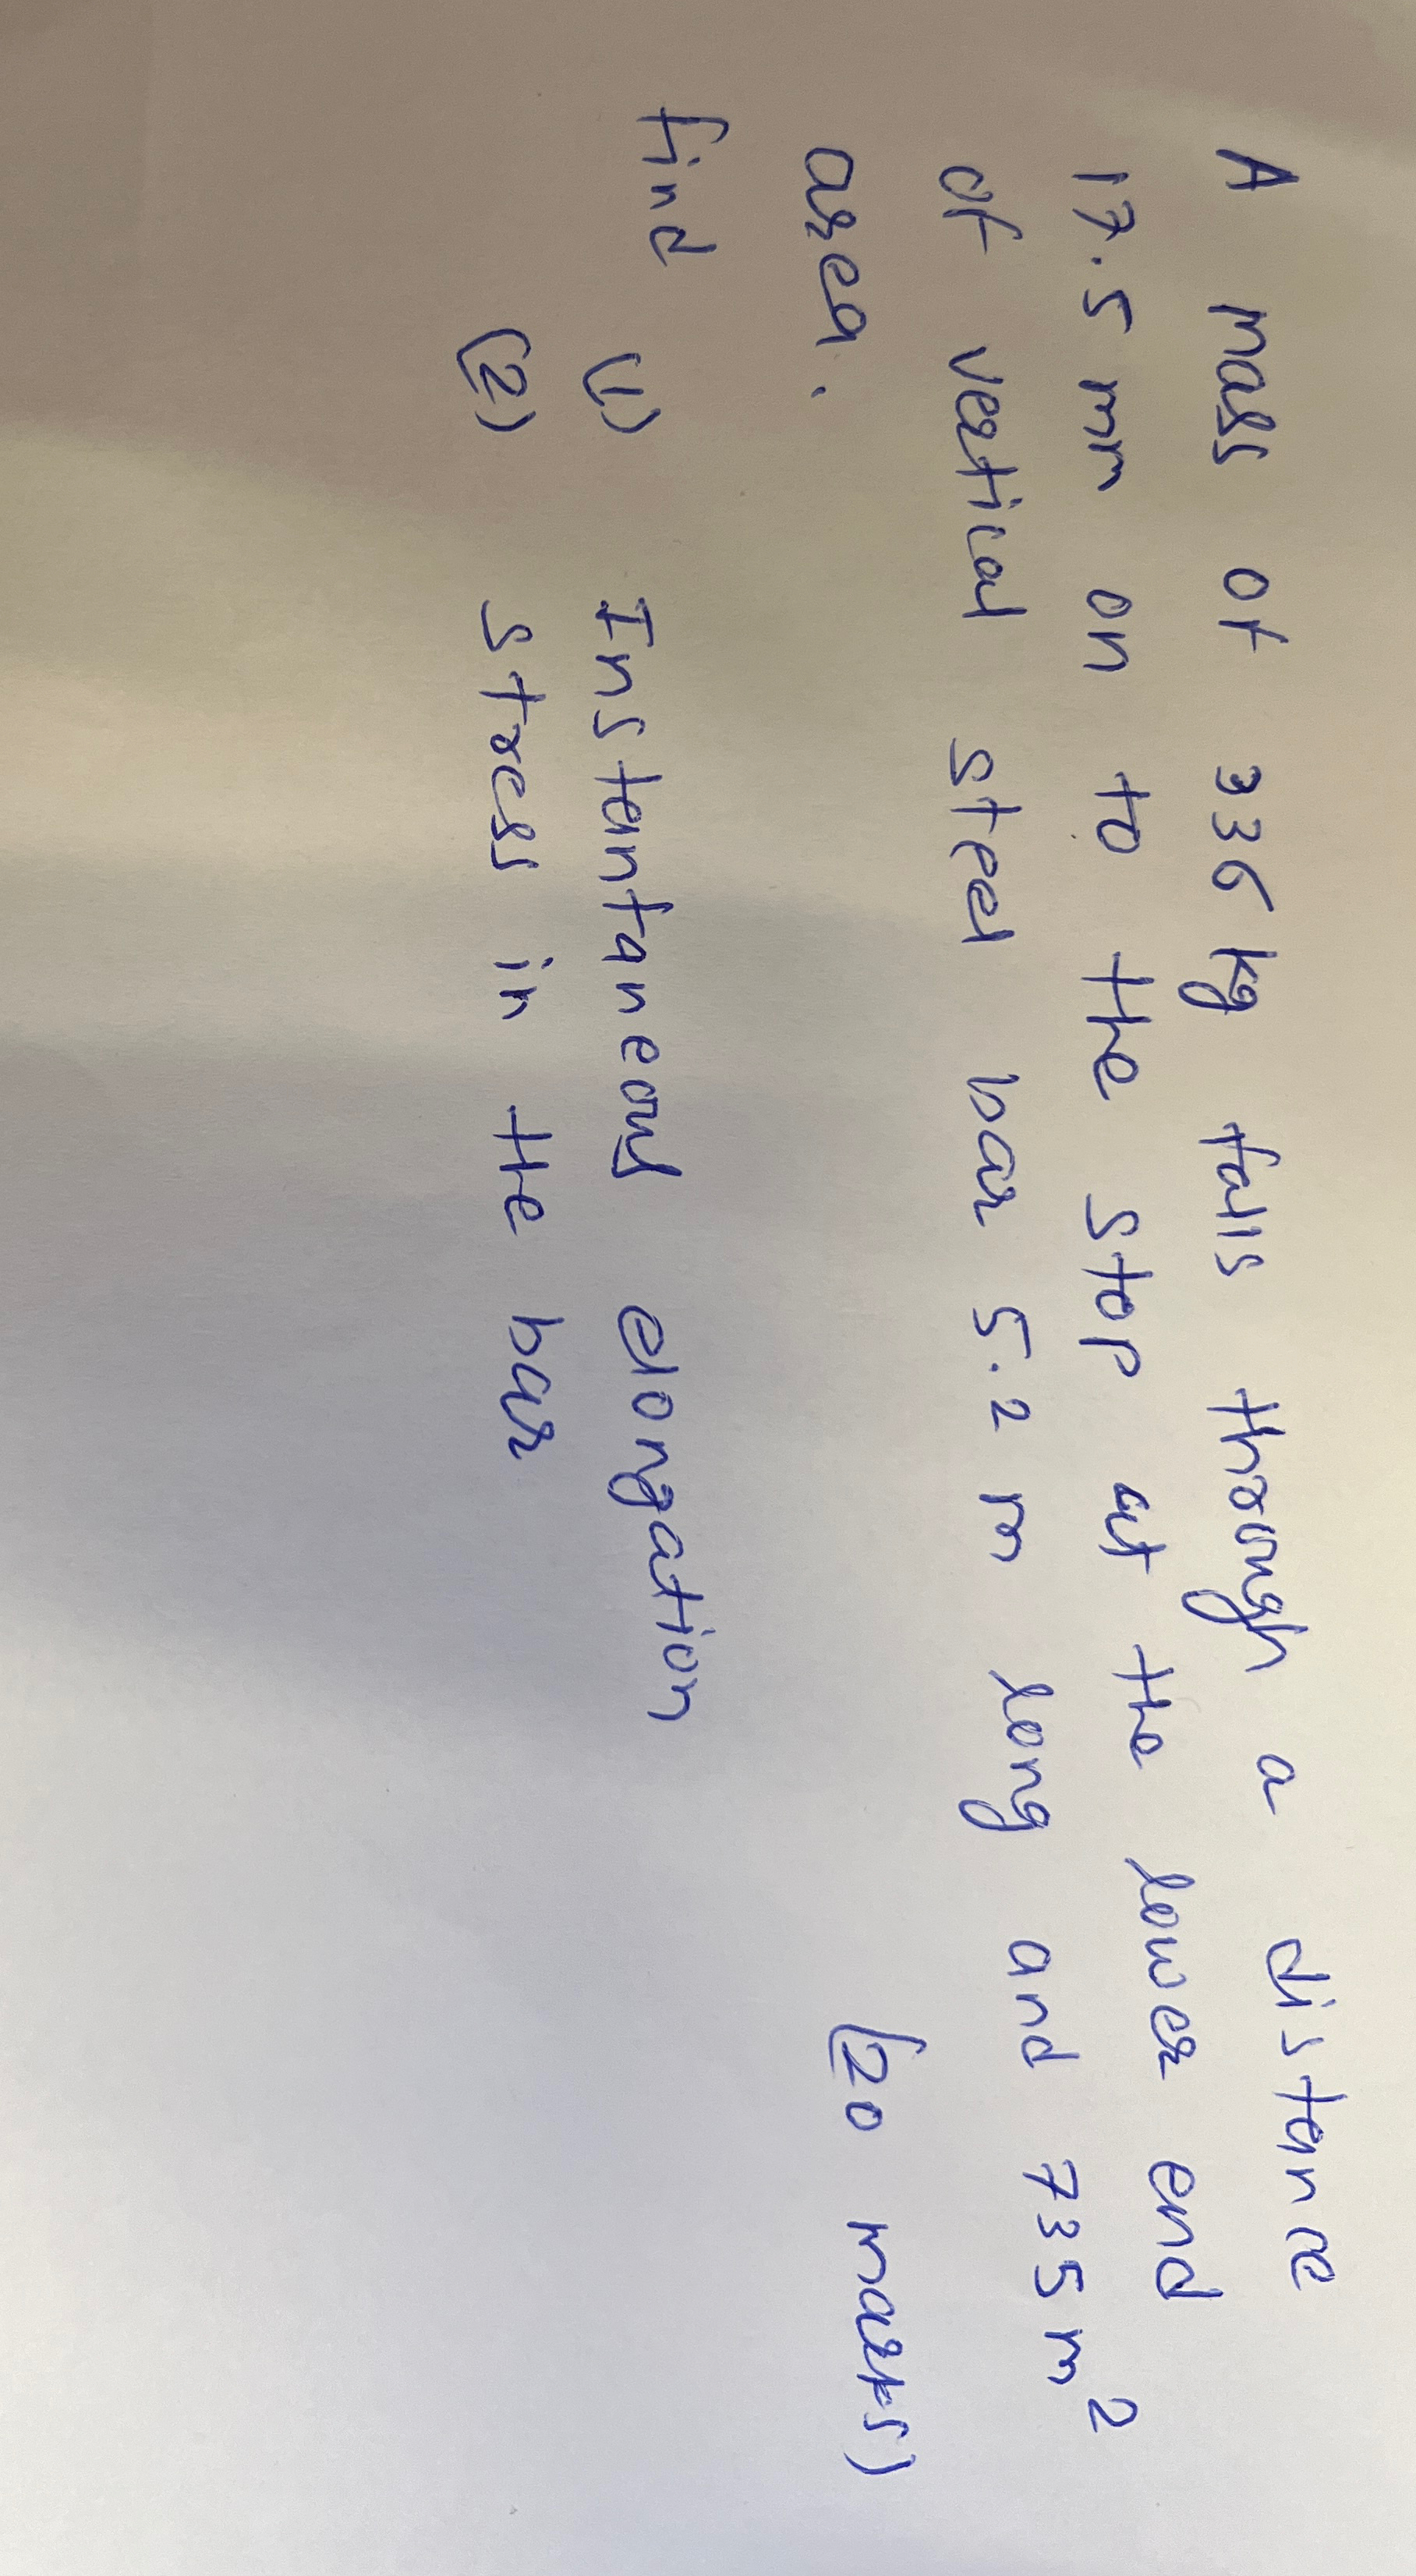 A mass of 336 kg falls through a distance
17.5 mm on to the stop at the lower end
of vertical steel bar 5.2 m long and 735 m²
area.
(20 marks)
find (1) Instantaneous elongation
(2) stress in the bar